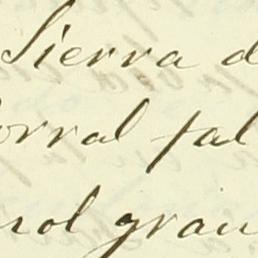 Sierra d
orral fal
rol gran